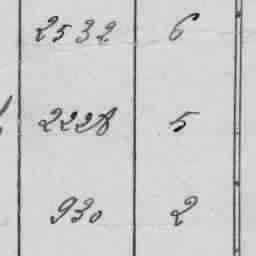 2532 6
2228 5
930 2